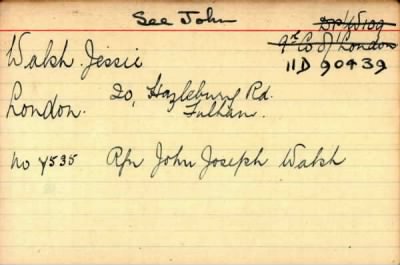 See John
9th Co of London
Walsh Jessie
11D 90439
London. 20, Hazlebury Rd.
Fulham.
No 4535 Rfn John Joseph Walsh